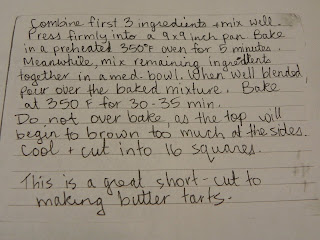 Combine first 3 ingredients + mix well.
Press firmly into a 9x9 inch pan. Bake
in a preheated 350°F oven for 5 minutes.
Meanwhile, mix remaining ingredients
together in a med. bowl. When well blended,
pour over the baked mixture. Bake
at 350°F for 30-35 min.
Do not over bake, as the top will
begin to brown too much at the sides.
Cool + cut into 16 squares.
This is a great short-cut to
making butter tarts.